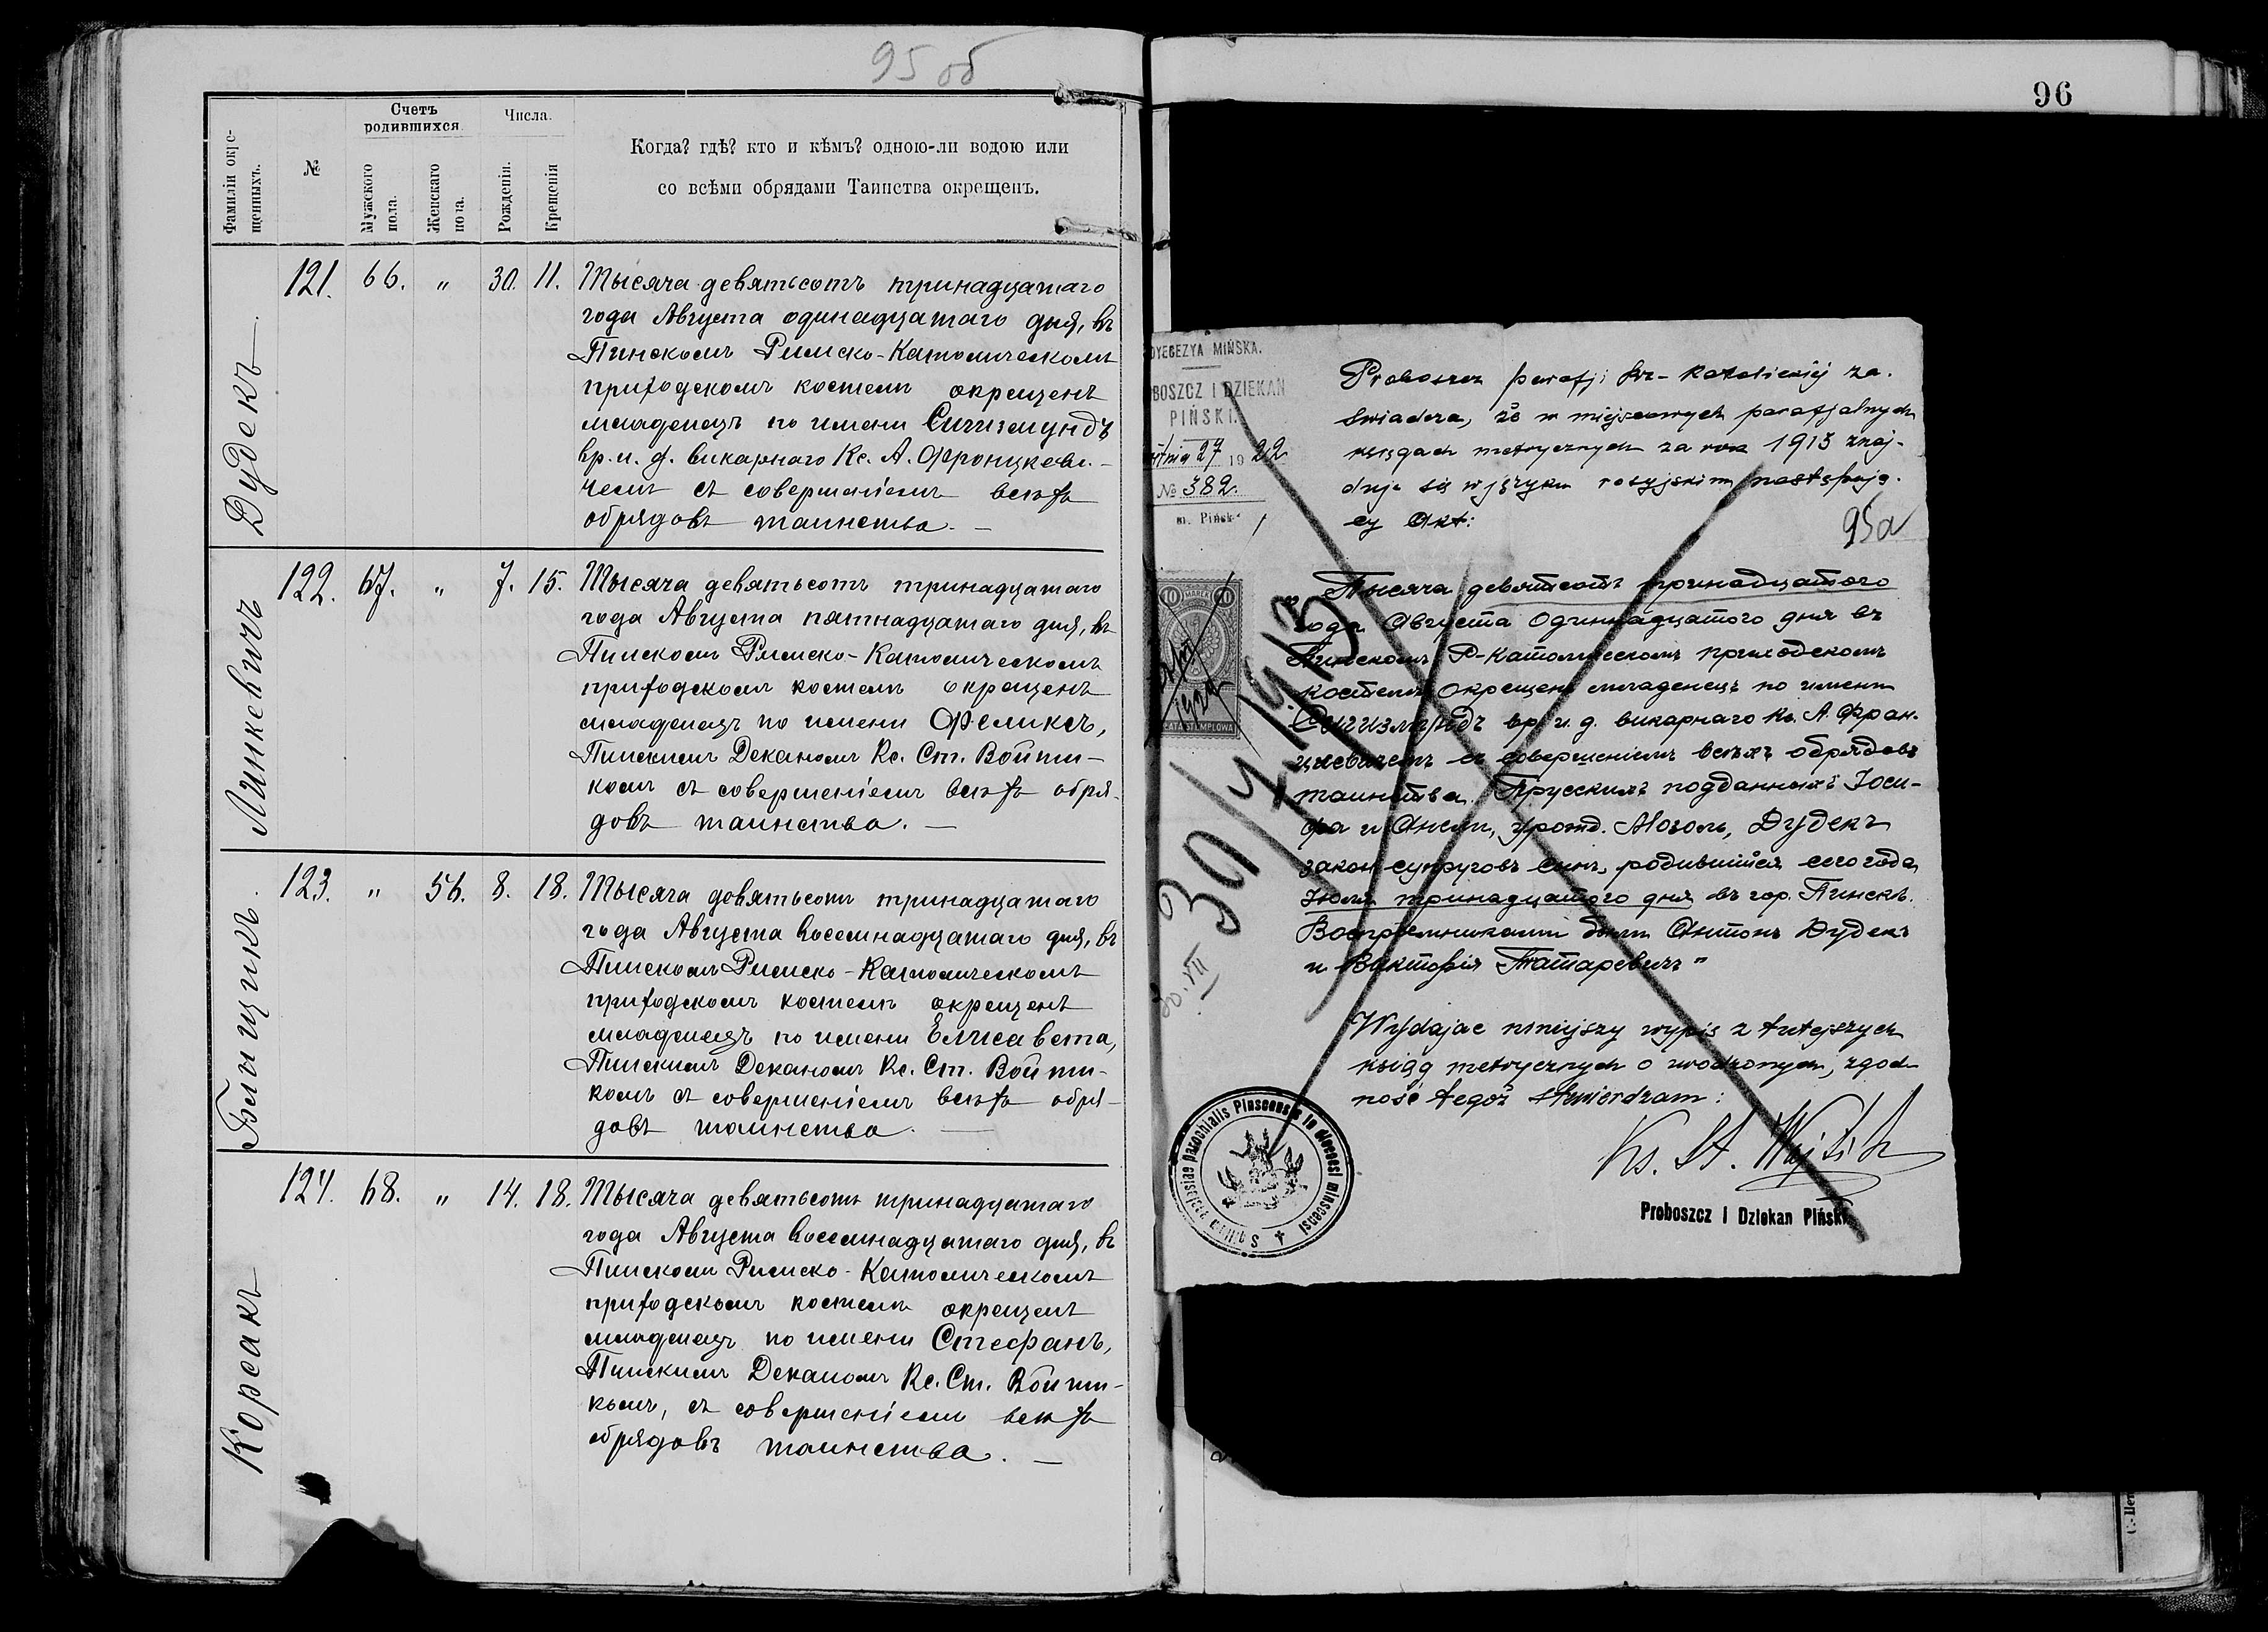 95 об
Фамиліи окре-
щенныхъ.
№
Счетъ
родившихся
Мужского
пола.
Женскаго
пола.
Числа.
Рожденія.
Крещенія
Когда? гдѣ? кто и кѣмъ? одною-ли водою или
со всѣми обрядами Таинства окрещенъ.
Дудекъ
121. 66. " 30. 11.
Тысяча девятьсотъ тринадцатаго
года Августа одинадцатаго дня, въ
Пинскомъ Римско-Католическомъ
приходскомъ костелѣ окрещенъ
младенецъ по имени Сигизмундъ
вр. и. д. викарнаго Кс. А. Францкеви-
чемъ съ совершеніемъ всѣхъ
обрядовъ таинства. —
Линкевичъ
122. 67. " 7. 15.
Тысяча девятьсотъ тринадцатаго
года Августа пятнадцатаго дня, въ
Пинскомъ Римско-Католическомъ
приходскомъ костелѣ окрещенъ
младенецъ по имени Феликсъ,
Пинскимъ Деканомъ Кс. Ст. Войти-
комъ съ совершеніемъ всѣхъ обря-
довъ таинства. —
Блыщикъ
123. " 56. 8. 18.
Тысяча девятьсотъ тринадцатаго
года Августа восемнадцатаго дня, въ
Пинскомъ Римско-Католическомъ
приходскомъ костелѣ окрещенъ
младенецъ по имени Елисавета,
Пинскимъ Деканомъ Кс. Ст. Войти-
комъ съ совершеніемъ всѣхъ обря-
довъ таинства. —
Корсакъ
124. 68. " 14. 18.
Тысяча девятьсотъ тринадцатаго
года Августа восемнадцатаго дня, въ
Пинскомъ Римско-Католическомъ
приходскомъ костелѣ окрещенъ
младенецъ по имени Стефанъ,
Пинскимъ Деканомъ Кс. Ст. Войти-
комъ, съ совершеніемъ всѣхъ
обрядовъ таинства. —
96
DYECEZYA MIŃSKA.
PROBOSZCZ I DZIEKAN
PIŃSKI.
27 1922
№ 382.
m. Pińsk
Proboszcz parafji Rz-Katolickiej za-
świadcza, że w miejscowych parafjalnych
księgach metrycznych za rok 1913 znaj-
duje się w języku rosyjskim następują-
cy Akt:
95a
"Тысяча девятсотъ тринадцатого
года Августа Одиннадцатого дня въ
Пинскомъ Р-Католическомъ приходскомъ
костелѣ окрещенъ младенецъ по имени
Сигизмундъ вр. и. д. викарнаго Кс. А. Фран-
цкевичемъ съ совершеніемъ всѣхъ обрядовъ
таинства. Прусскихъ подданныхъ Іоси-
фа и Анели, урожд. Мозоль, Дудекъ
закон. супруговъ сынъ, родившійся сего года
Іюля тринадцатого дня въ гор. Пинскѣ.
Воспріемниками были Антонъ Дудекъ
и Викторія Татаревичъ"
30/VII 1913
30.VII
Wydając niniejszy wypis z tutejszych
ksiąg metrycznych o urodzonych, zgod-
ność tegoż stwierdzam:
Ks. St. Wojtik
Proboszcz i Dziekan Piński
Sigillum ecclesiae parochialis Pinscensis in dioecesi minscensi